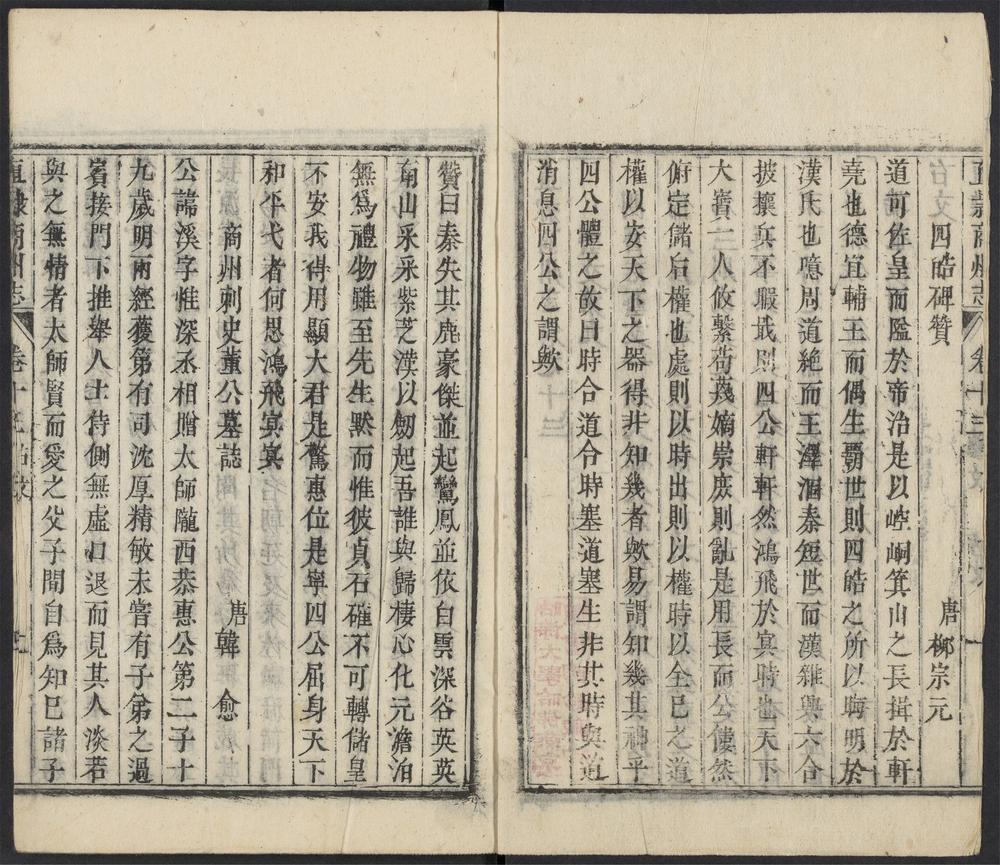 直隸商州志 卷十三
四皓碑贊
唐 柳宗元
道可佐皇而隘於帝治是以崆峒箕山之長揖於軒
堯也德宜輔王而偶生霸世則四皓之所以晦明於
漢氏也噫周道絕而王澤涸秦短世而漢雜興六合
披攘兵不暇戢則四公軒軒然鴻飛於冥時也天下
大寶一人攸繫苟蔑嫡崇庶則亂是用長而公僂然
俯定儲后權也處則以時出則以權時以全已之道
權以安天下之器得非知幾者歟易謂知幾其神乎
四公體之故曰時合道合時塞道塞生非其時與道
消息四公之謂歟
贊曰秦失其鹿豪傑並起鸞鳳並依白雲深谷英英
南山采采紫芝漢以劒起吾誰與歸棲心化元澹泊
無為禮物雖至先生默而惟彼貞石確不可轉儲皇
不安我得用顯大君是驚惠位是寧四公屈身天下
和平弋者何思鴻飛冥冥
商州刺史董公墓誌
唐 韓 愈
公諱溪字惟深丞相贈太師隴西恭惠公第二子十
九歲明兩經獲第有司沈厚精敏未甞有子弟之過
賓接門下推舉人士侍側無虛口退而見其人淡若
與之無情者太師賢而愛之父子間自為知已諸子
直隸商州志 卷十三